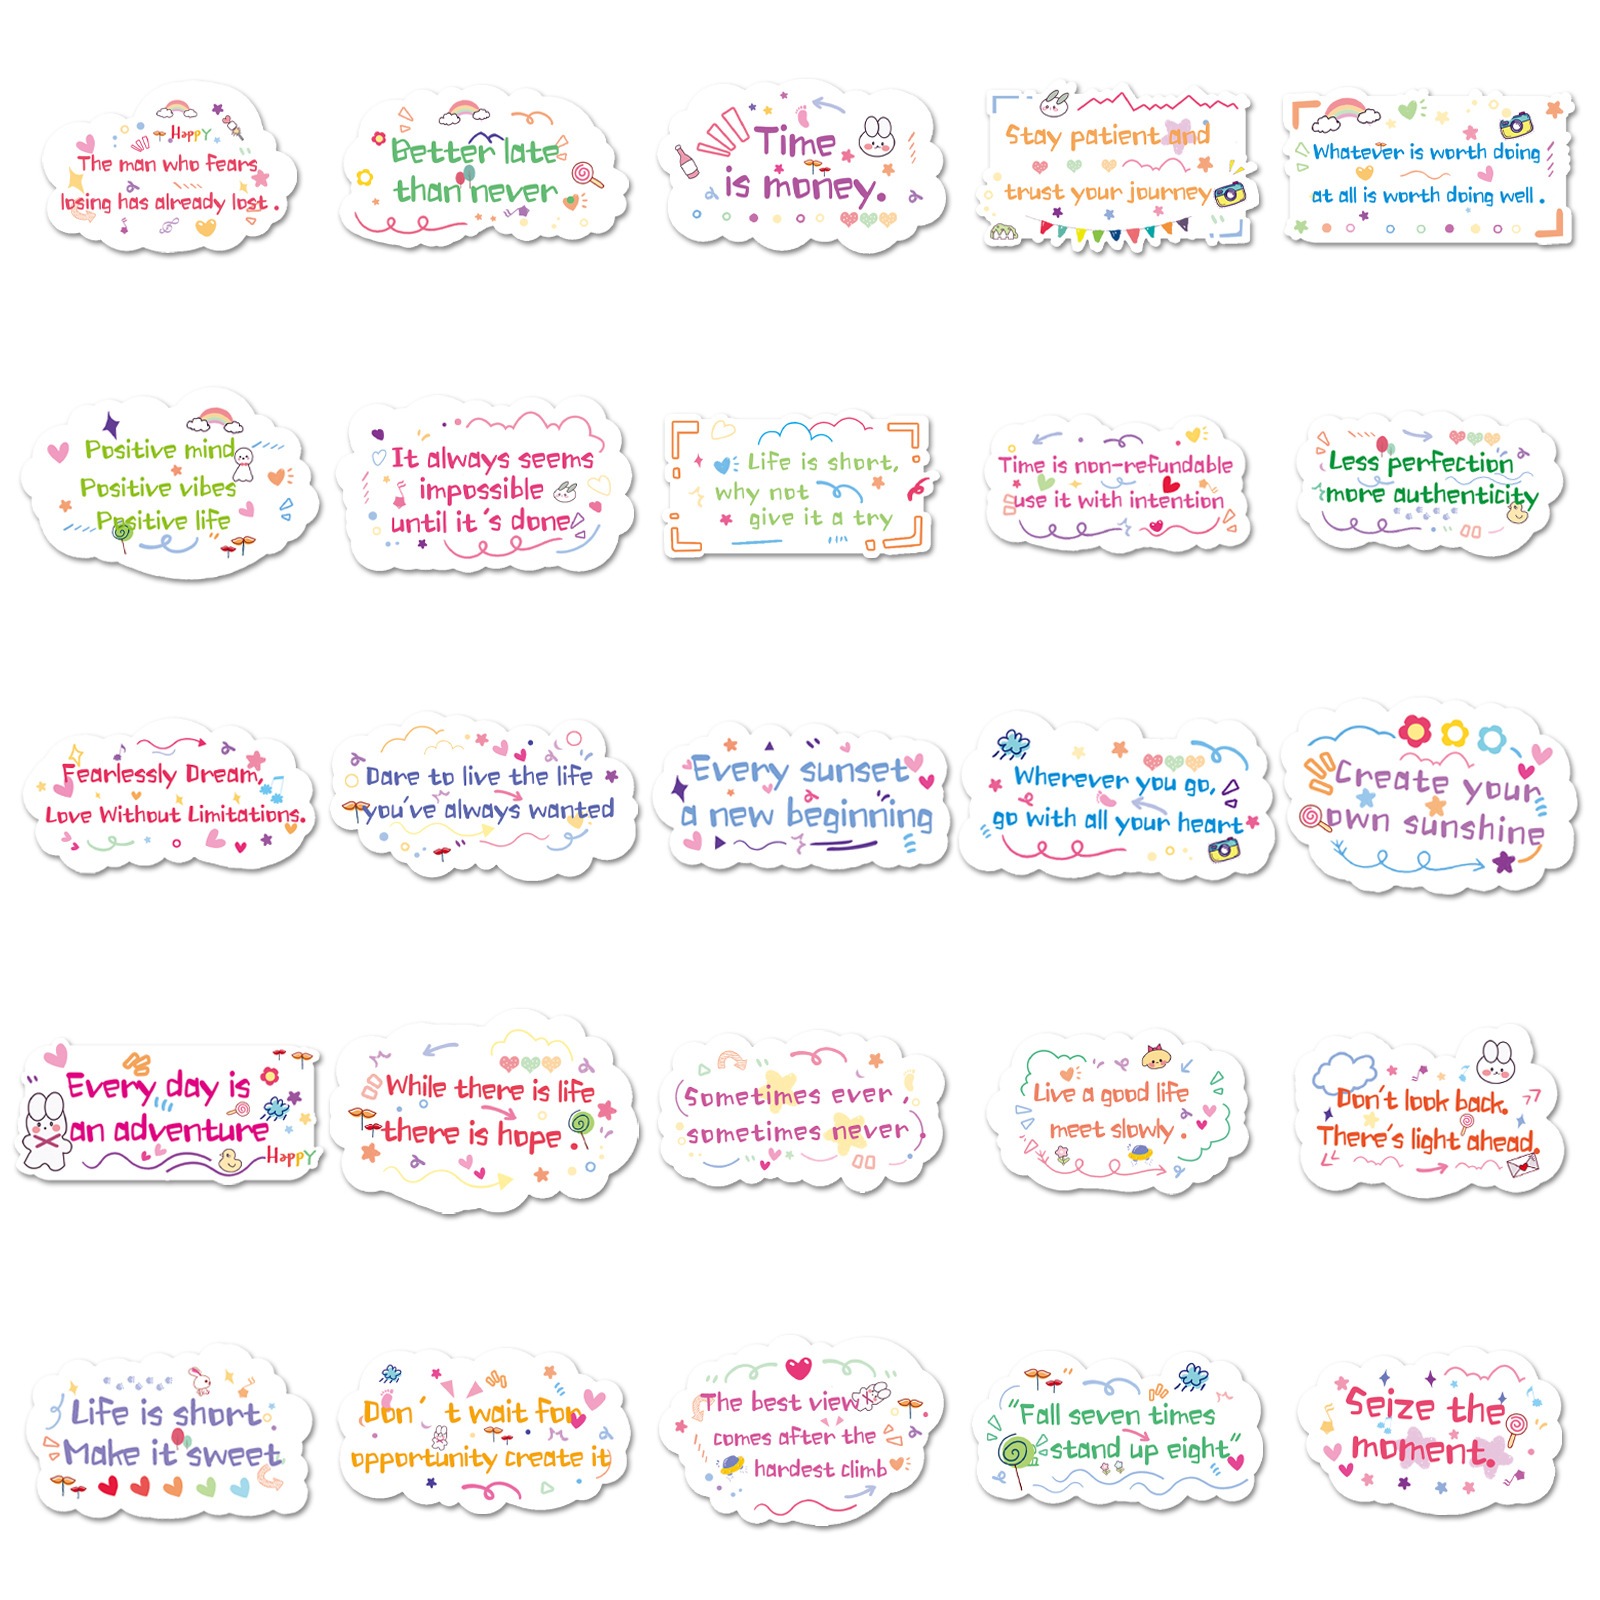 Happy
The man who fears
losing has already lost.
Better late
than never
Time
is money.
Stay patient and
trust your journey
Whatever is worth doing
at all is worth doing well.
Positive mind
Positive vibes
Positive life
It always seems
impossible
until it's done
Life is short,
why not
give it a try
Time is non-refundable
use it with intention
Less perfection
more authenticity
Fearlessly Dream,
Love Without Limitations.
Dare to live the life
you've always wanted
Every sunset
a new beginning
Wherever you go,
go with all your heart
Create your
own sunshine
Every day is
an adventure
Happy
While there is life
there is hope.
Sometimes ever,
sometimes never.
Live a good life
meet slowly.
Don't look back.
There's light ahead.
Life is short
Make it sweet
Don't wait for
opportunity create it
The best view
comes after the
hardest climb
"Fall seven times
stand up eight"
Seize the
moment.